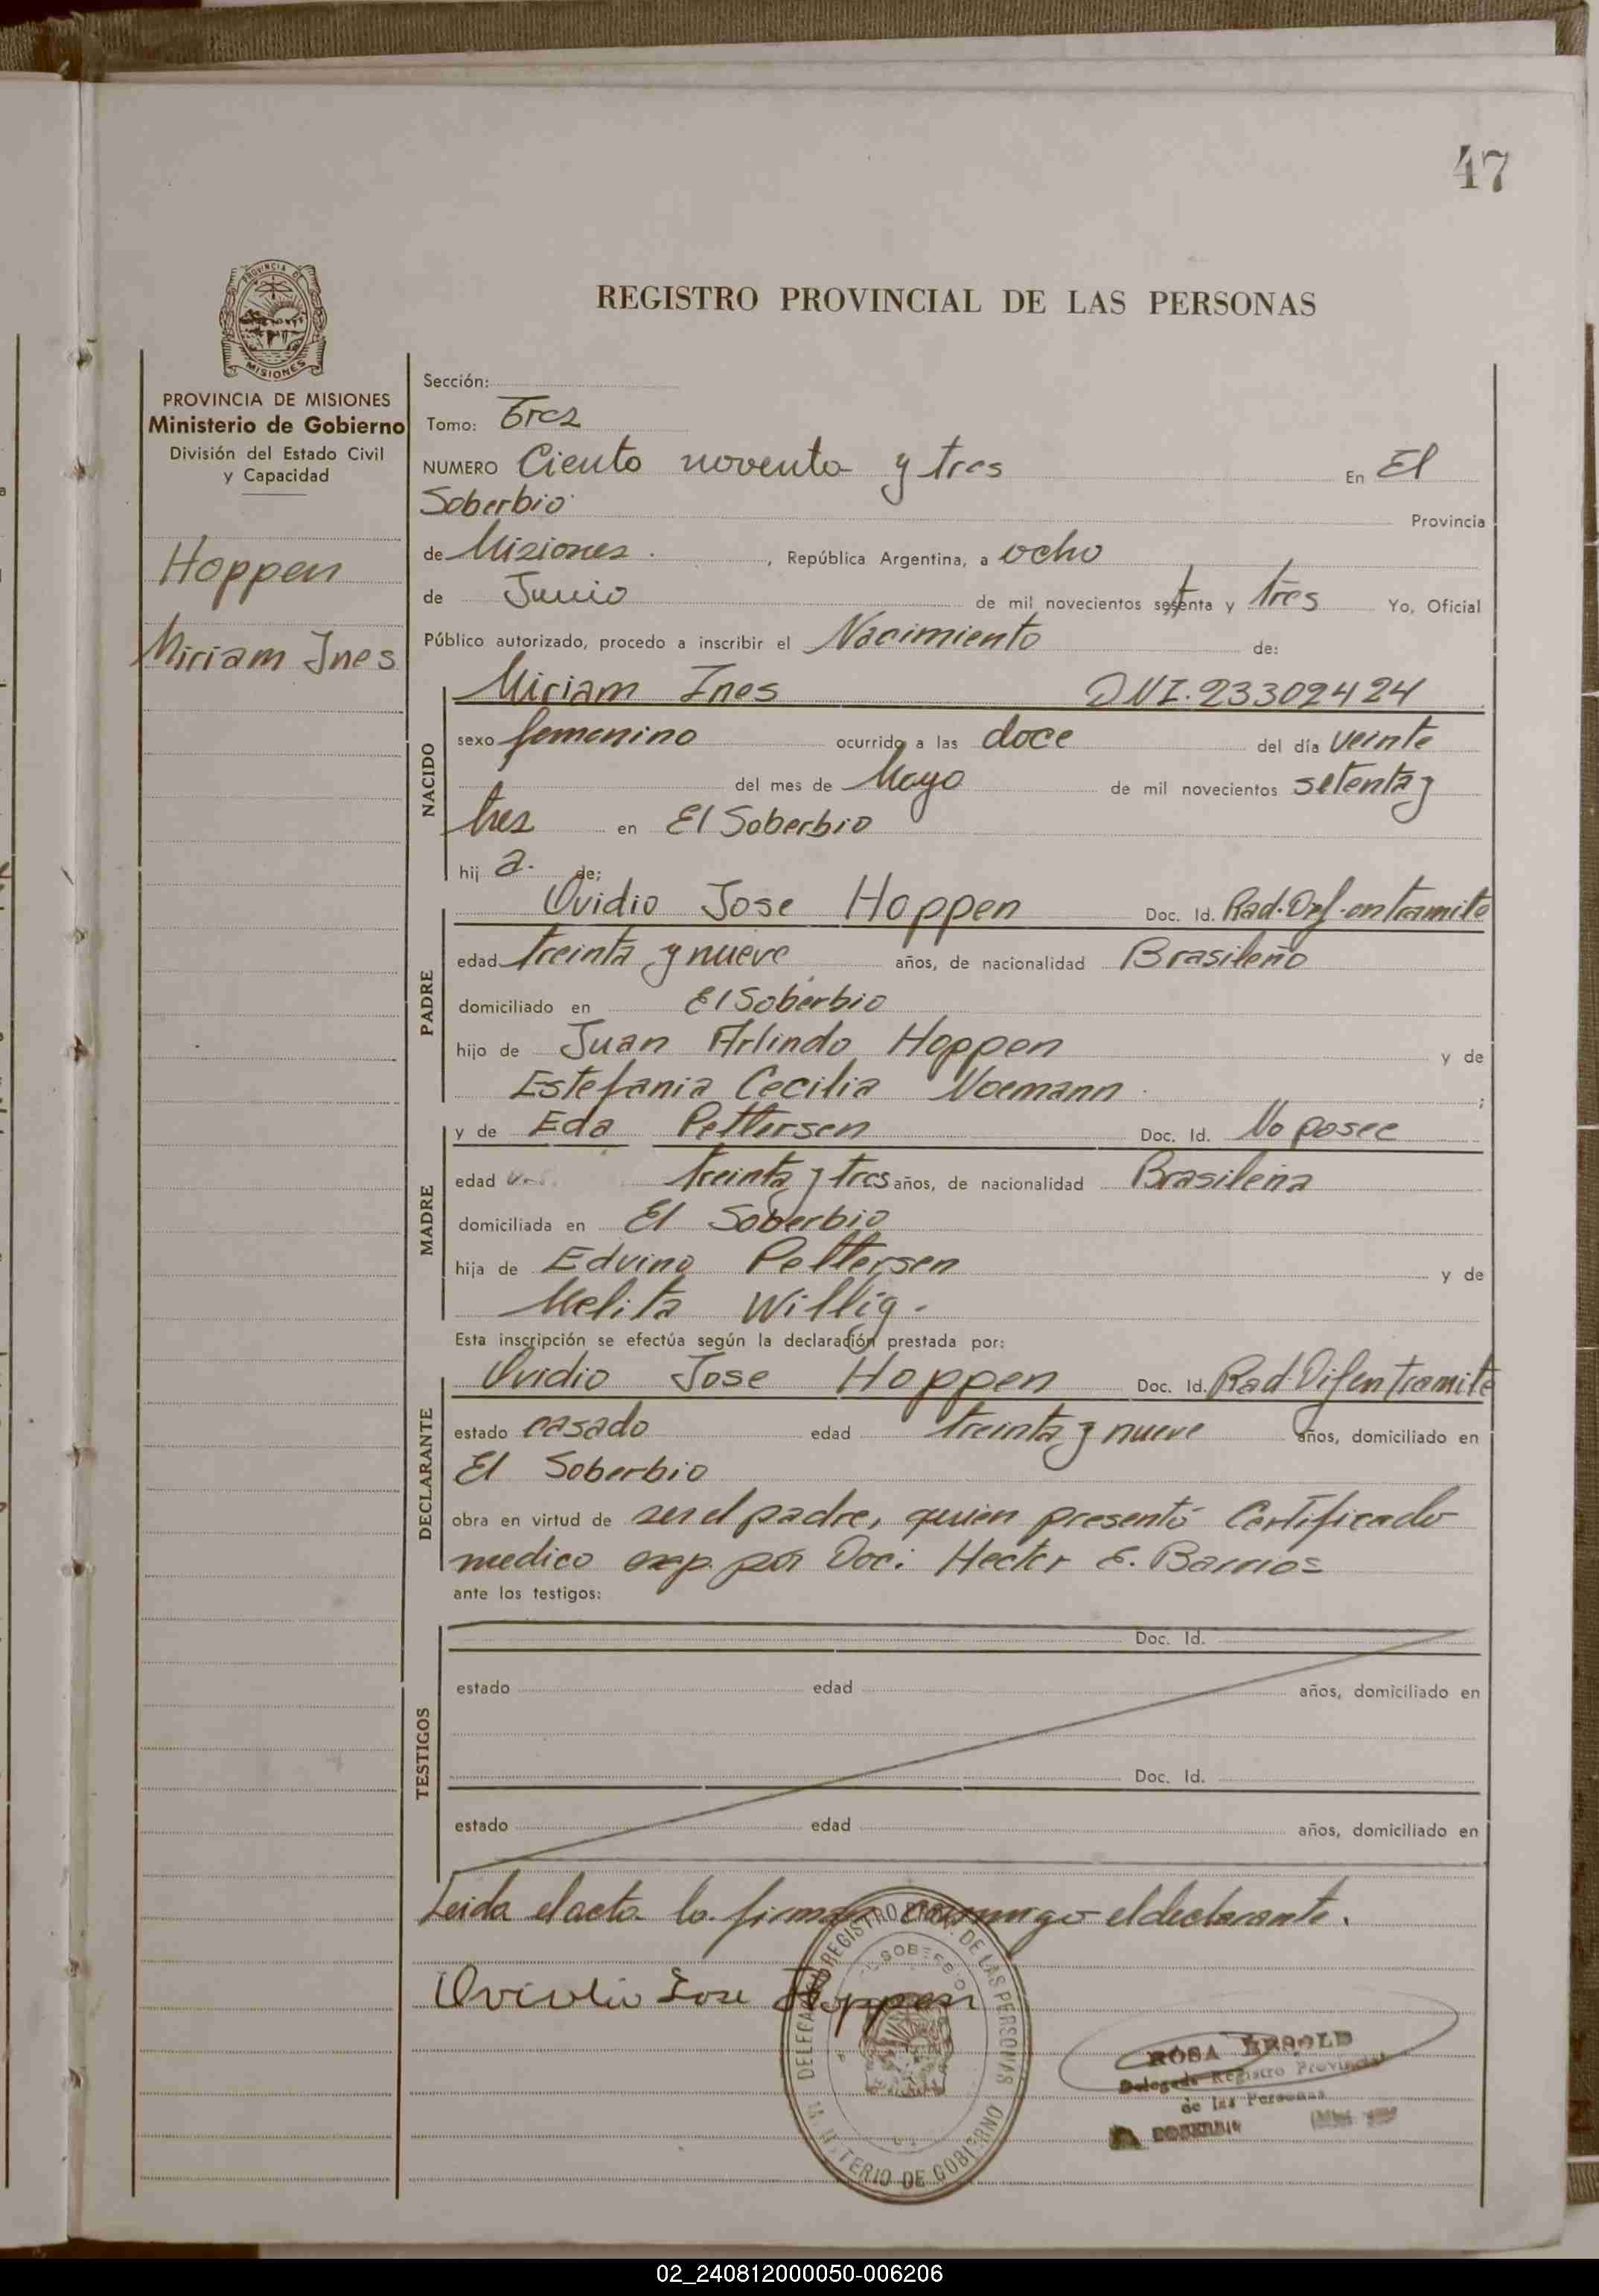 47
PROVINCIA DE
MISIONES
REGISTRO PROVINCIAL DE LAS PERSONAS
PROVINCIA DE MISIONES
Ministerio de Gobierno
División del Estado Civil
y Capacidad
Hoppen
Miriam Ines
Sección:
Tomo: Tres
NUMERO Ciento noventa y tres En El
Soberbio Provincia
de Misiones . , República Argentina, a ocho
de Junio de mil novecientos setenta y tres Yo, Oficial
Público autorizado, procedo a inscribir el Nacimiento de:
NACIDO
Miriam Ines DNI. 23302424
sexo femenino ocurrido a las doce del día veinte
del mes de Mayo de mil novecientos setenta y
tres en El Soberbio
hij a. de;
PADRE
Ovidio Jose Hoppen Doc. Id. Rad. Def. en tramite
edad treinta y nueve años, de nacionalidad Brasileño
domiciliado en El Soberbio
hijo de Juan Arlindo Hoppen y de
Estefania Cecilia Noemann ;
MADRE
y de Eda Pettersen Doc. Id. No posee
edad treinta y tres años, de nacionalidad Brasileña
domiciliada en El Soberbio
hija de Edvino Pettersen y de
Melita Willig.
Esta inscripción se efectúa según la declaración prestada por:
DECLARANTE
Ovidio Jose Hoppen Doc. Id. Rad. Def en tramite
estado casado edad treinta y nueve años, domiciliado en
El Soberbio
obra en virtud de ser el padre, quien presentó Certificado
medico exp. por Doc: Hector E. Barrios
ante los testigos:
TESTIGOS
Doc. Id.
estado edad años, domiciliado en
Doc. Id.
estado edad años, domiciliado en
Leida el acta la firma conmigo el declarante.
Ovidio Jose Hoppen
REGISTRO DE LAS PERSONAS
SOBERBIO
TERIO DE GOBIERNO
ROSA
Delegada Registro Provincial
de las Personas
SOBERBIO
02_240812000050-006206